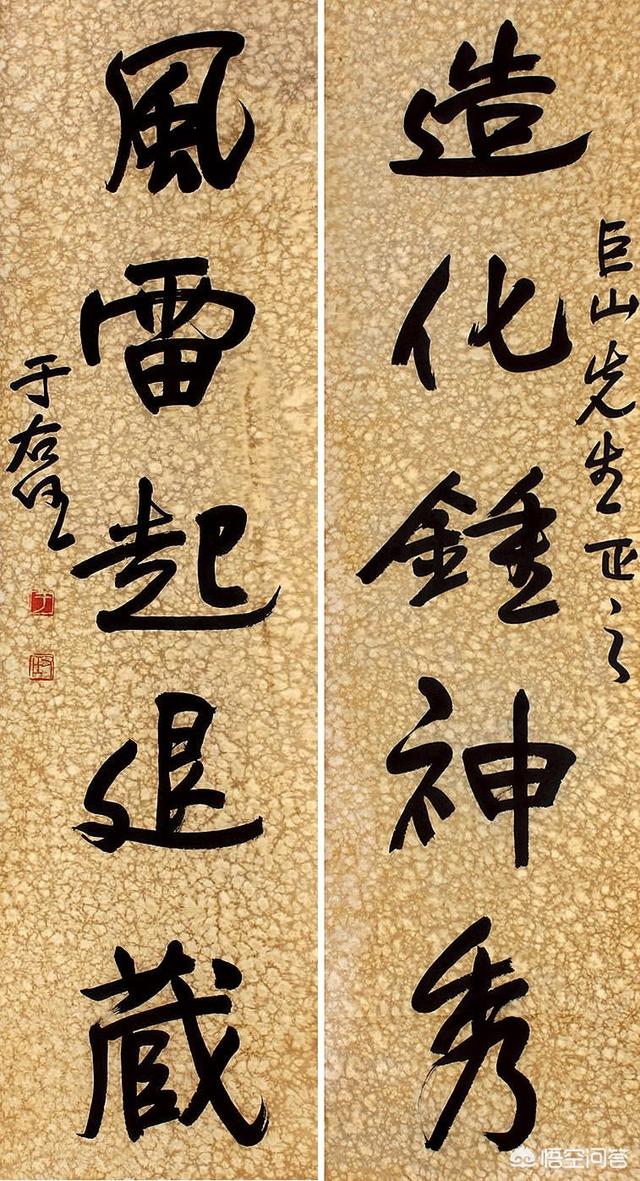 造化鍾神秀
巨山先生正之
風雷起退藏
于右任
悟空问答